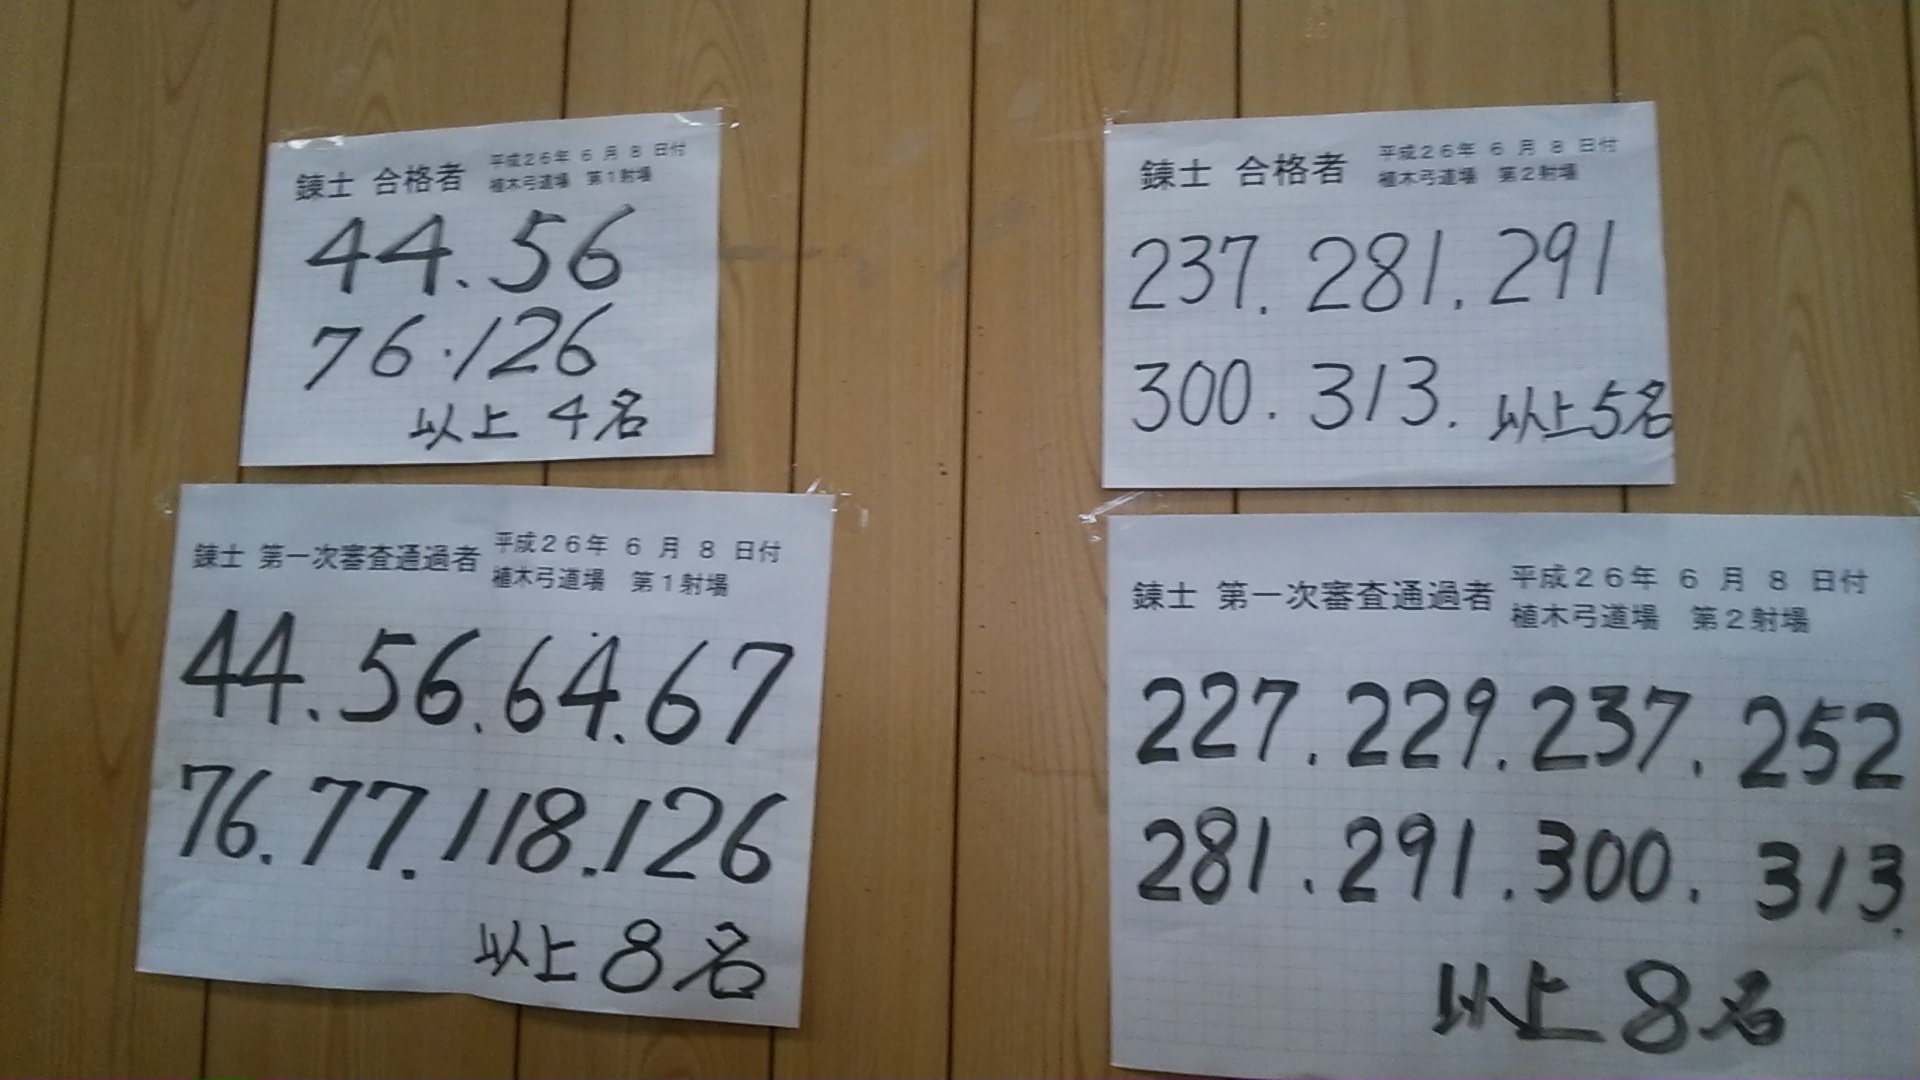 錬士 合格者 平成26年 6 月 8 日付
植木弓道場 第1射場
44.56
76.126
以上4名
錬士 合格者 平成26年 6 月 8 日付
植木弓道場 第2射場
237.281.291
300.313.以上5名
錬士 第一次審査通過者 平成26年 6 月 8 日付
植木弓道場 第1射場
44.56.64.67
76.77.118.126
以上8名
錬士 第一次審査通過者 平成26年 6 月 8 日付
植木弓道場 第2射場
227.229.237.252
281.291.300.313.
以上8名